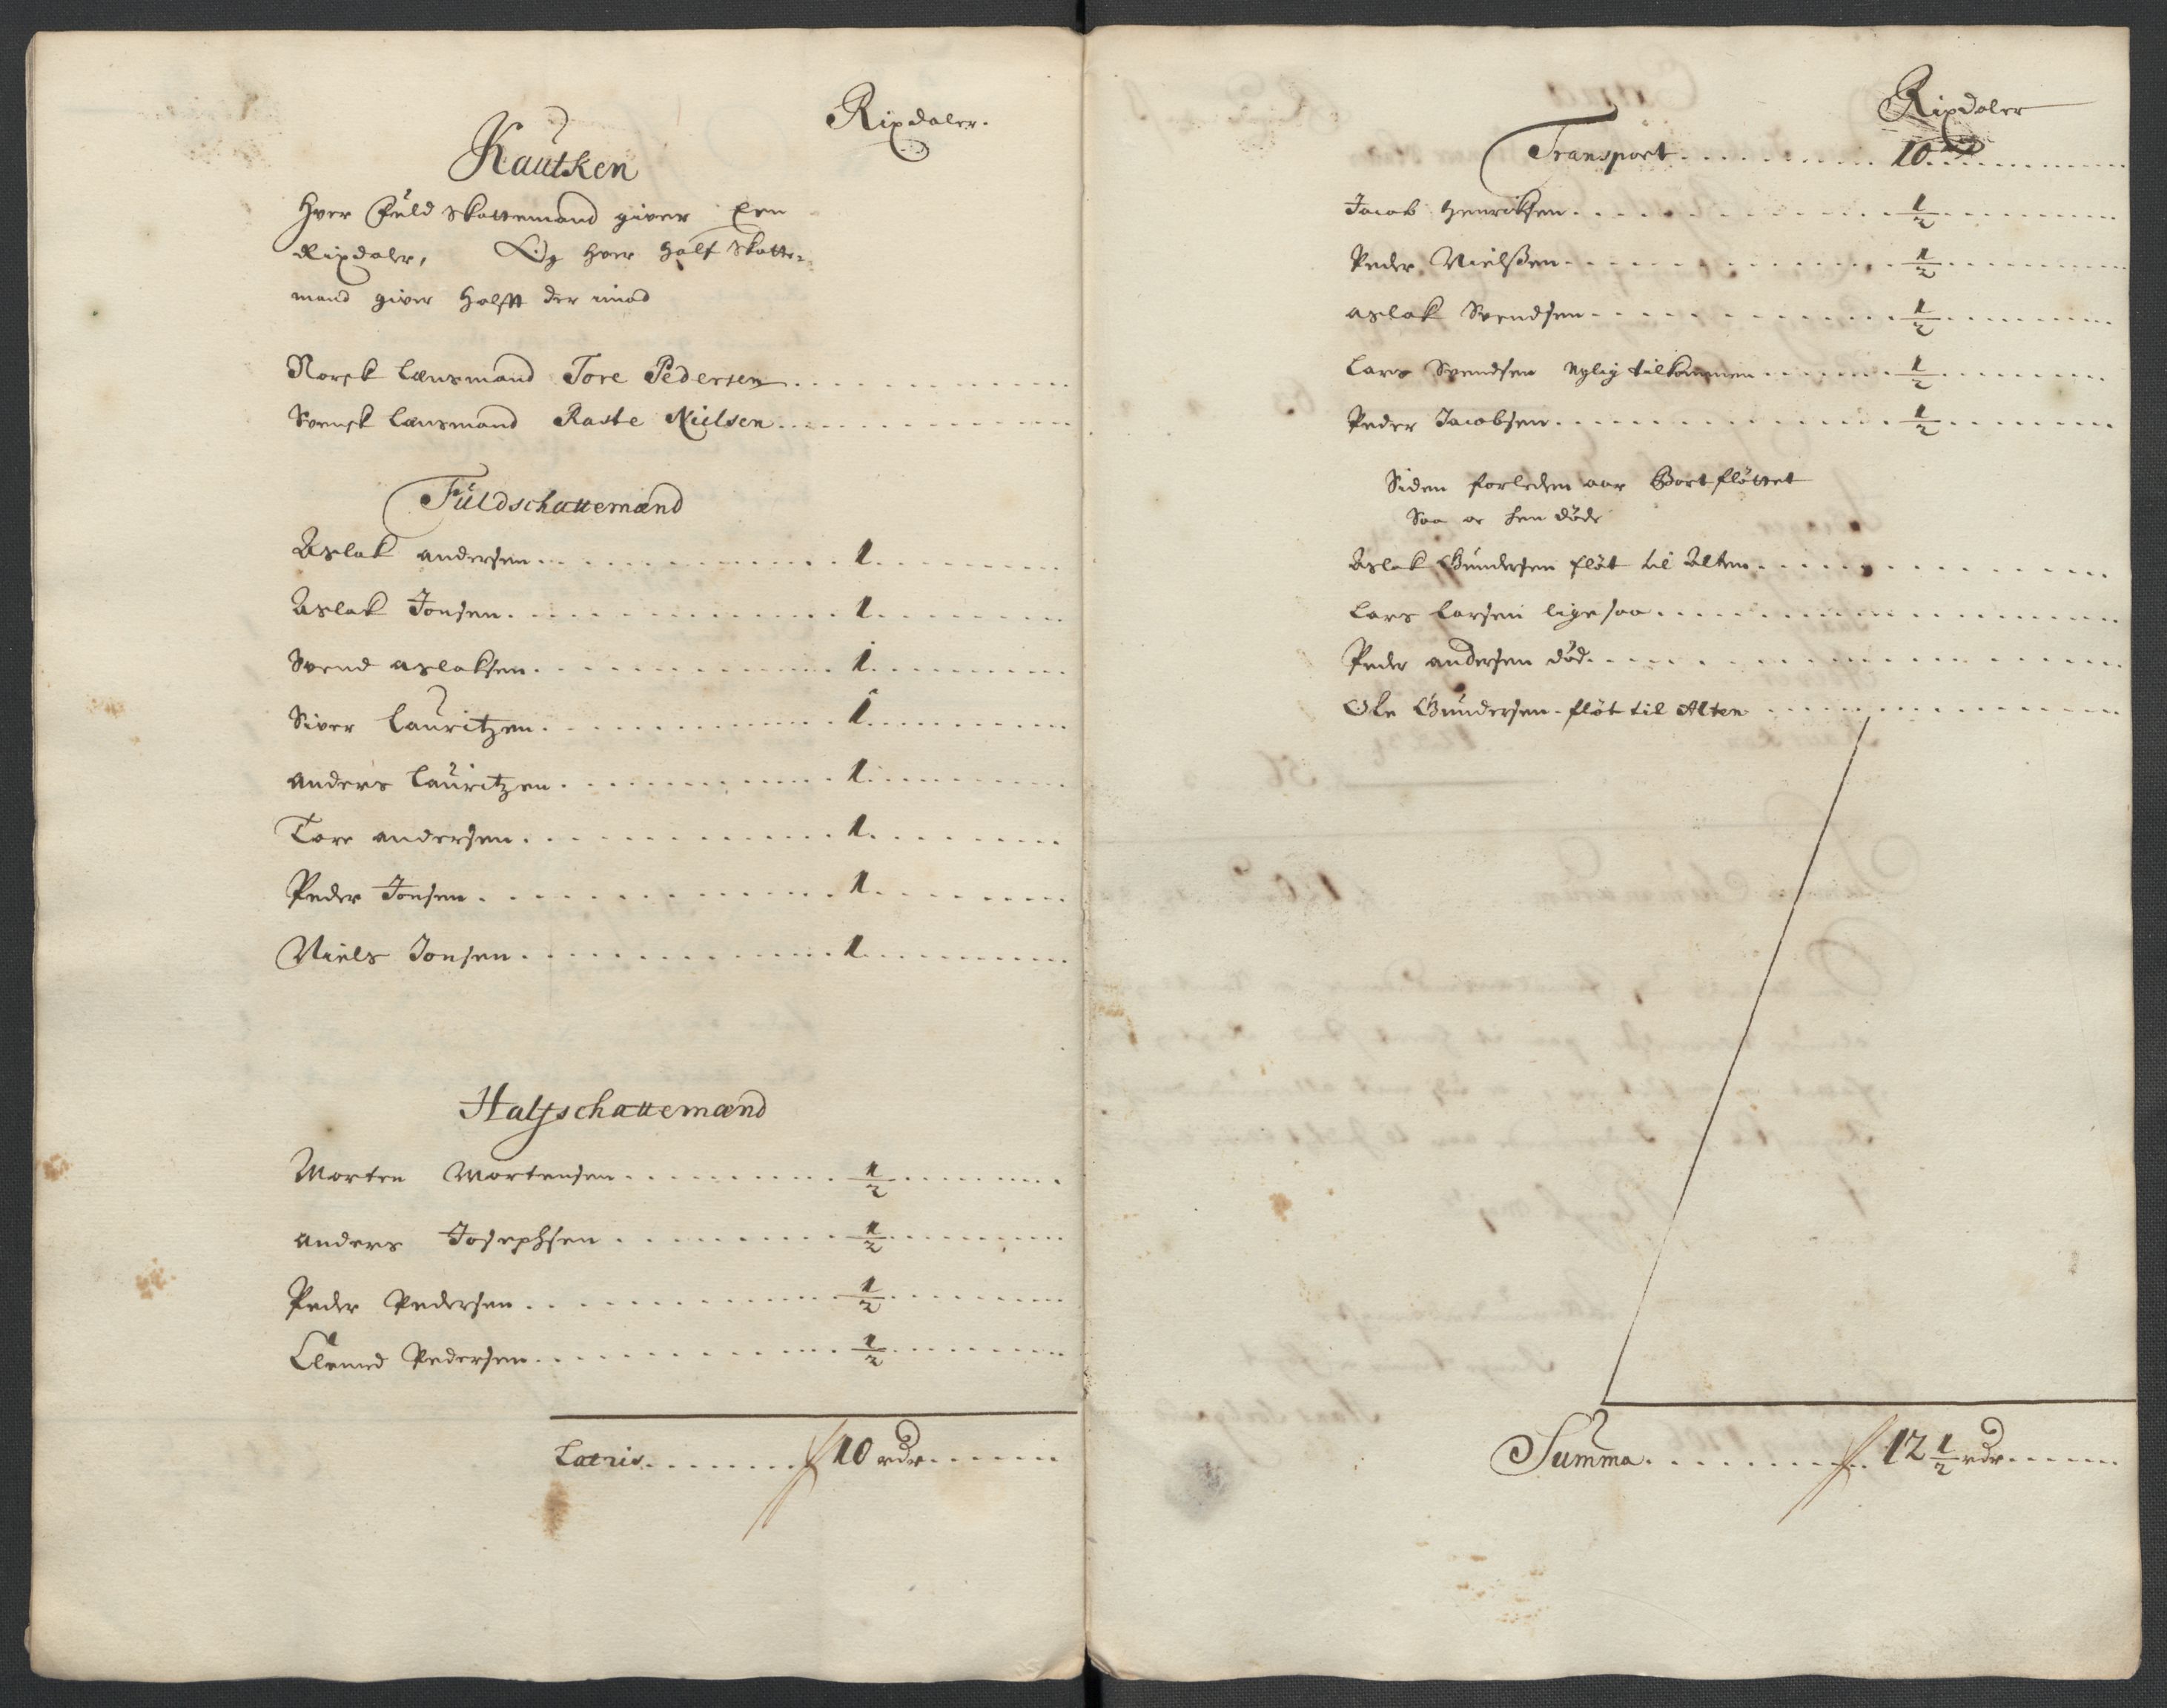 Rixdaler.
Kautken
Hver Fuld Skattemand giver Een
Rixdaler, Og hver Half Skatte-
mand giver Halfft der imod
Norsk Lænsmand Tore Pedersen
Svensk Lænsmand Raste Nielsen
Fuldschattemænd
Aslak Andersen 1
Aslak Jonsen 1
Svend Aslaksen 1
Siver Lauritzen 1
Anders Lauritzen 1
Tore Andersen 1
Peder Jonsen 1
Niels Jonsen 1
Halfschattemænd
Morten Mortensen 1/2
Anders Josephsen 1/2
Peder Pedersen 1/2
Clemed Pedersen 1/2
Lateris 10 rdr
Rixdaler
Transport 10
Jacob Henriksen 1/2
Peder Nielssen 1/2
Aslak Svendsen 1/2
Lars Svendsen Nylig tilkommen 1/2
Peder Jacobsen 1/2
Siden forleden aar Bortfløttet
Saa og døde
Aslak Gundersen fløt til Alten
Lars Larsen lige saa
Peder Andersen død
Ole Gundersen fløt til Alten
Summa 12 1/2 rdr